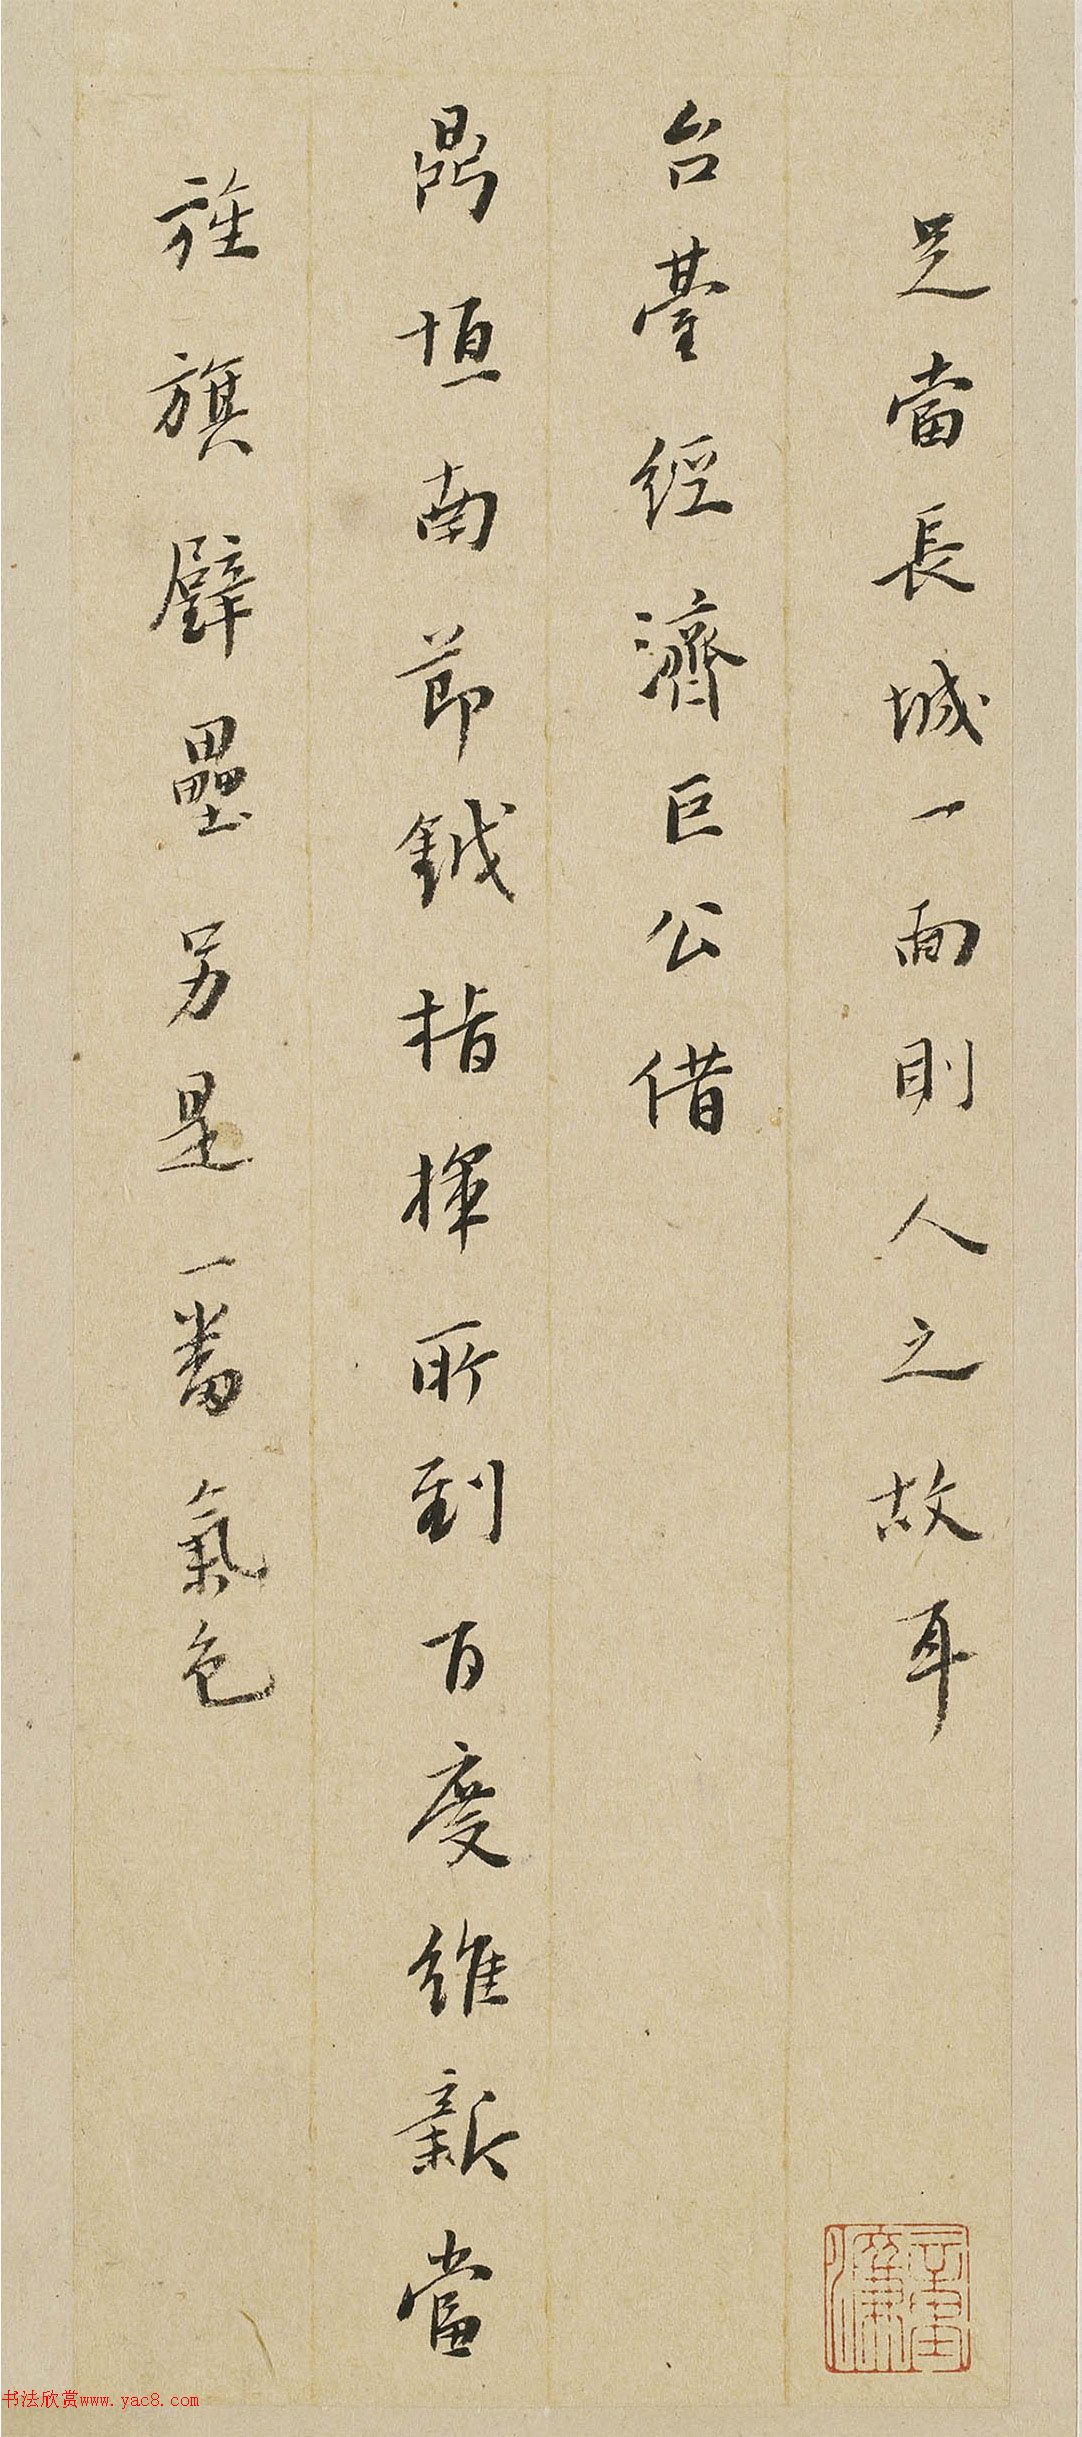 足當長城一面則人之故耳
台臺經濟巨公借
鼎垣南節鉞指揮所到百度維新當
旌旗壁壘另是一番氣色
书法欣赏www.yac8.com